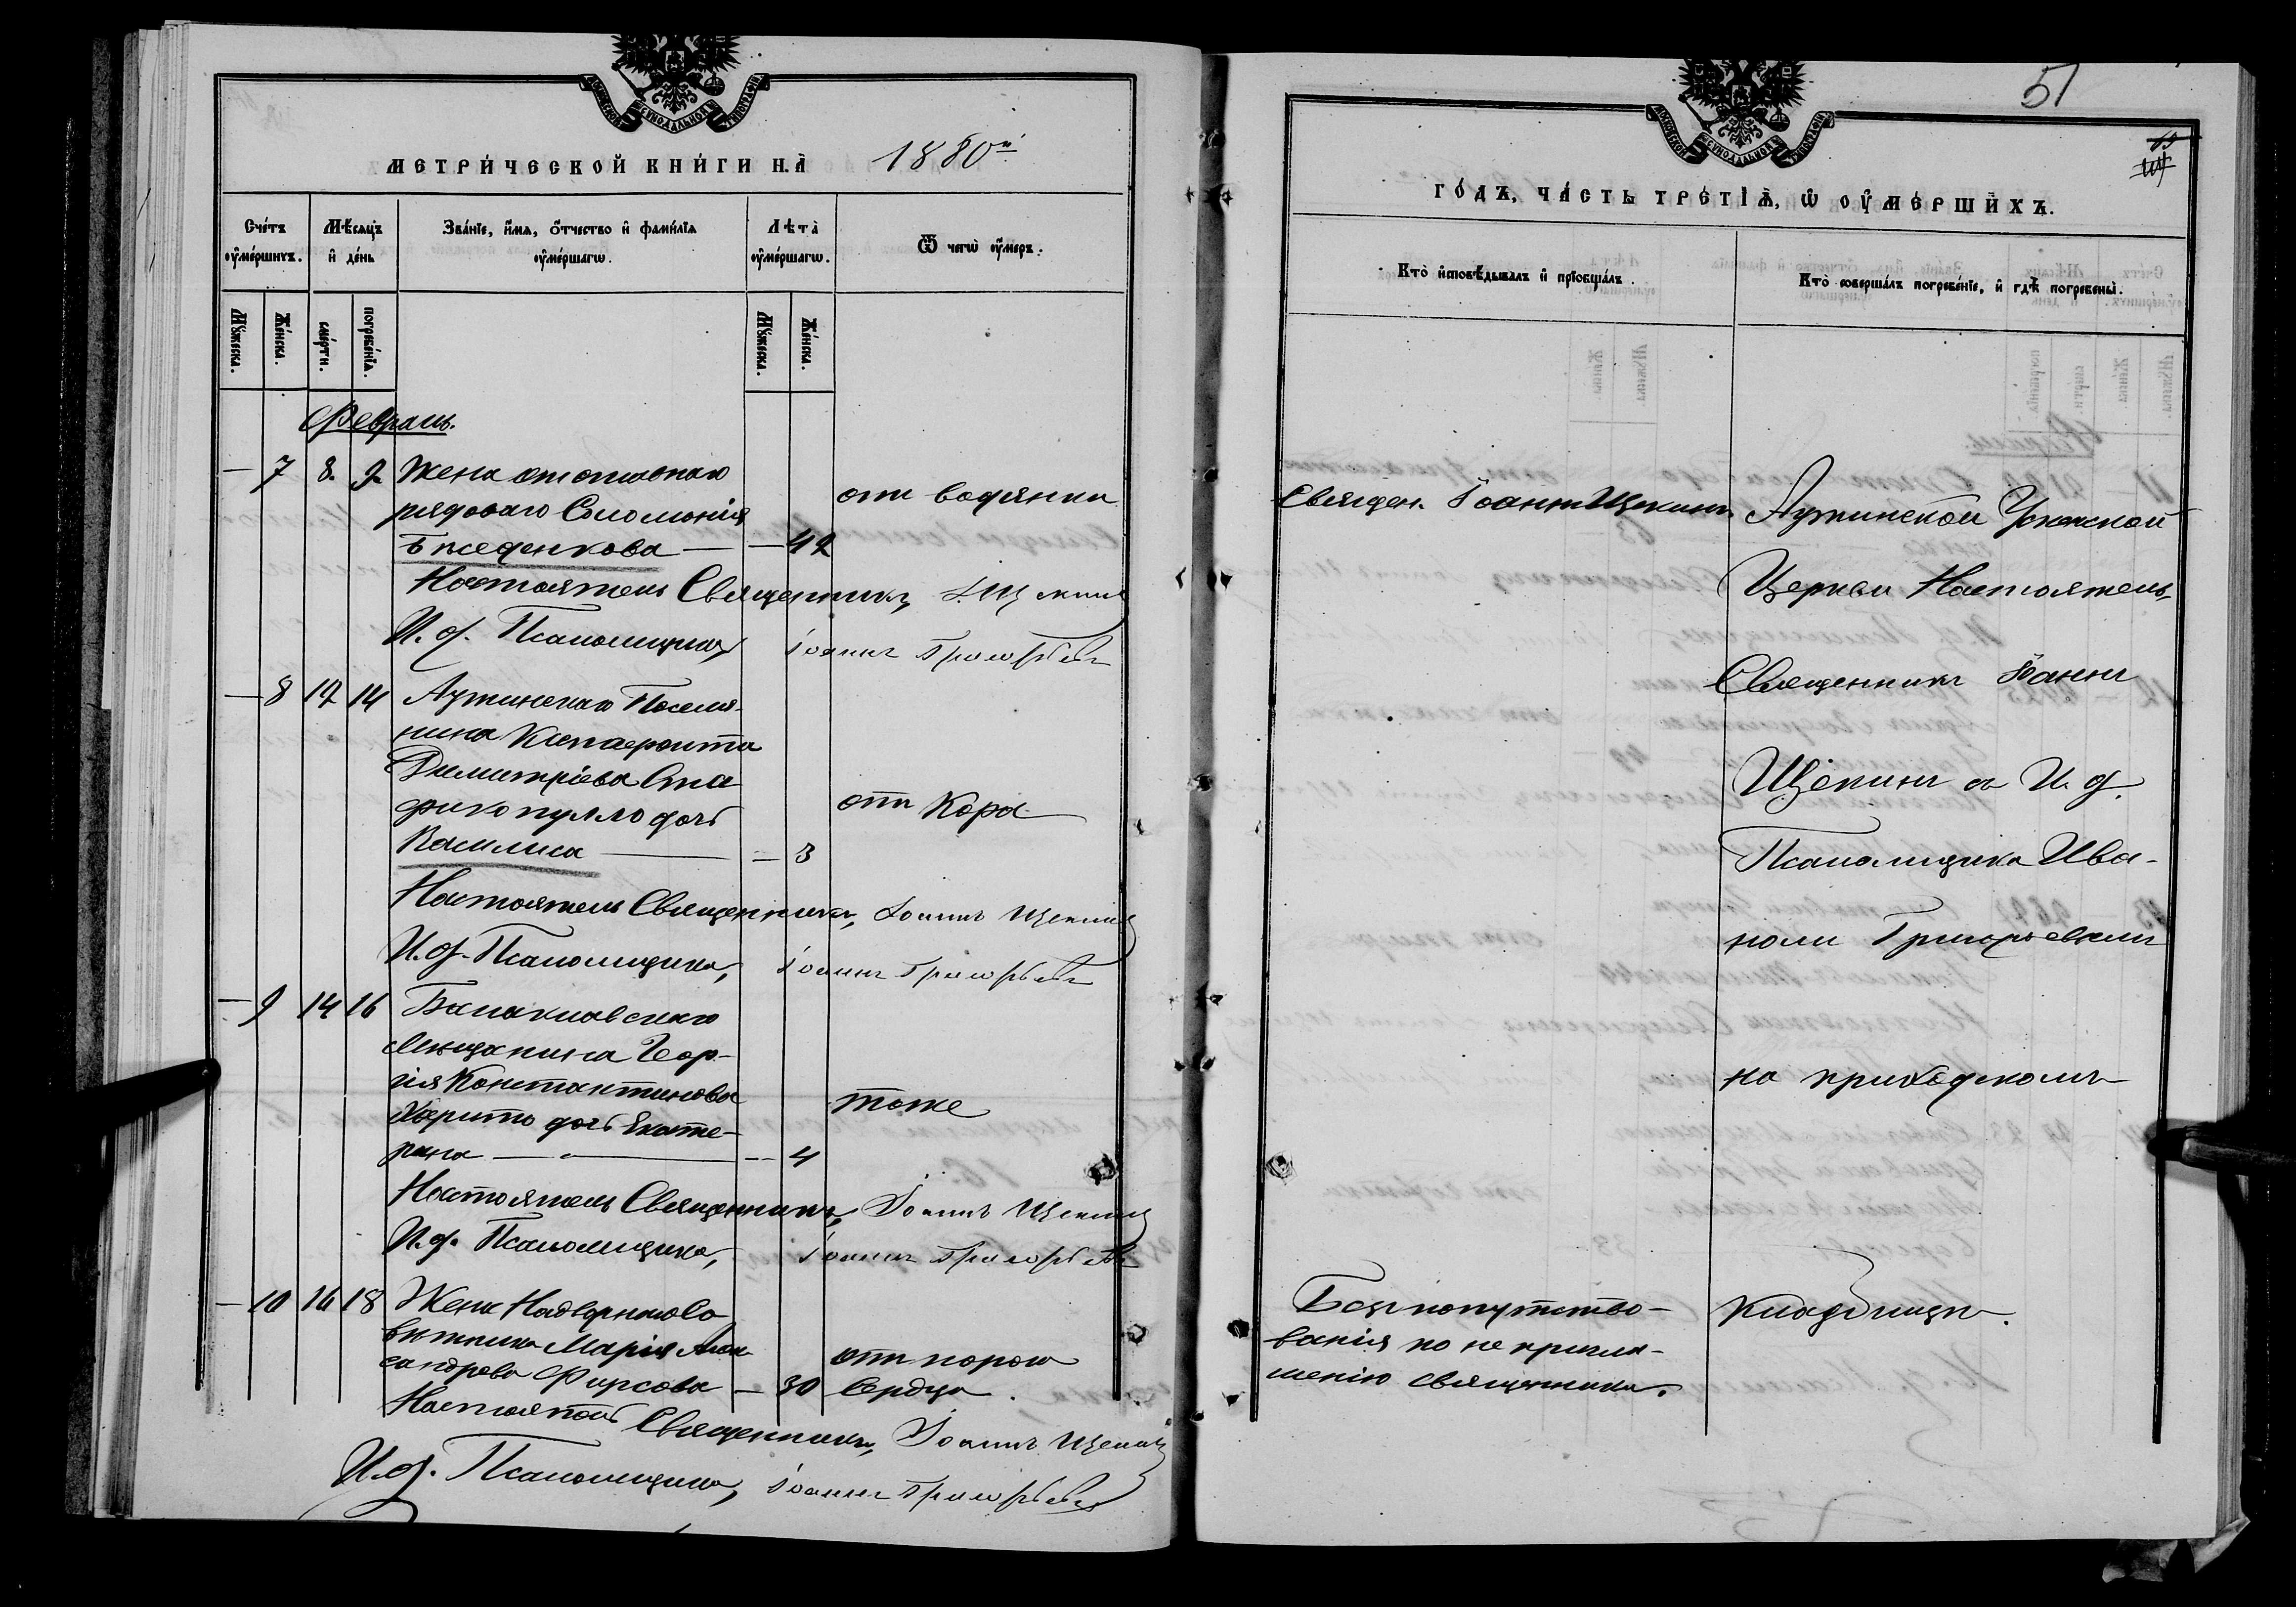 МЕТРИЧЕСКОЙ КНИГИ НА 1880й
Счетъ оумершихъ.
Мѣсяцъ и день
Званїе, имя, отчество и фамилїя оумершагѡ.
Лѣта оумершагѡ.
Ѿ чегѡ оумеръ.
Мужеска.
Женска.
смерти.
погребенїя.
Мужеска.
Женска.
Февраль.
— 7 8. 9. Жена отставнаго
рядоваго Соломонія
Бжеденкова — — 42
отъ водянки
Настоятель Священникъ, І. Щекинъ
И. д. Псаломщика, Іоаннъ Григорьевъ
— 8 12 14 Аутинскаго Поселя-
нина
Димитріева Ста
фикопулло дочь
Василиса — — 3
отъ Кора
Настоятель Священникъ, Іоаннъ Щекинъ
И. д. Псаломщика, Іоаннъ Григорьевъ
— 9 14 16 Балаклавскаго
Мещанина Геор-
гія Константинова
Харито дочь Екате-
рина — — 4
тоже
Настоятель Священникъ, Іоаннъ Щекинъ
И. д. Псаломщика, Іоаннъ Григорьевъ
— 10 16 18 Жена Надворнаго Со
вѣтника Марія Алек
сандрова Фирсова — 30
отъ порока
Сердца.
Настоятель Священникъ, Іоаннъ Щекинъ
И. д. Псаломщика, Іоаннъ Григорьевъ
51
ГОДЪ, ЧАСТЬ ТРЕТЇѦ, Ѡ ОУМЕРШИХЪ.
Кто исповѣдывалъ и прїобщалъ.
Кто совершалъ погребенїе, и гдѣ погребены.
Священ. Іоаннъ Щекинъ
Аутинской Успенской
Церкви Настоятель
Священникъ Іоаннъ
Щекинъ съ И. д.
Псаломщика Ива-
номъ Григорьевымъ
на приходскомъ
Кладбищѣ.
Безъ напутство-
ванія по не пригла-
шенію священника.